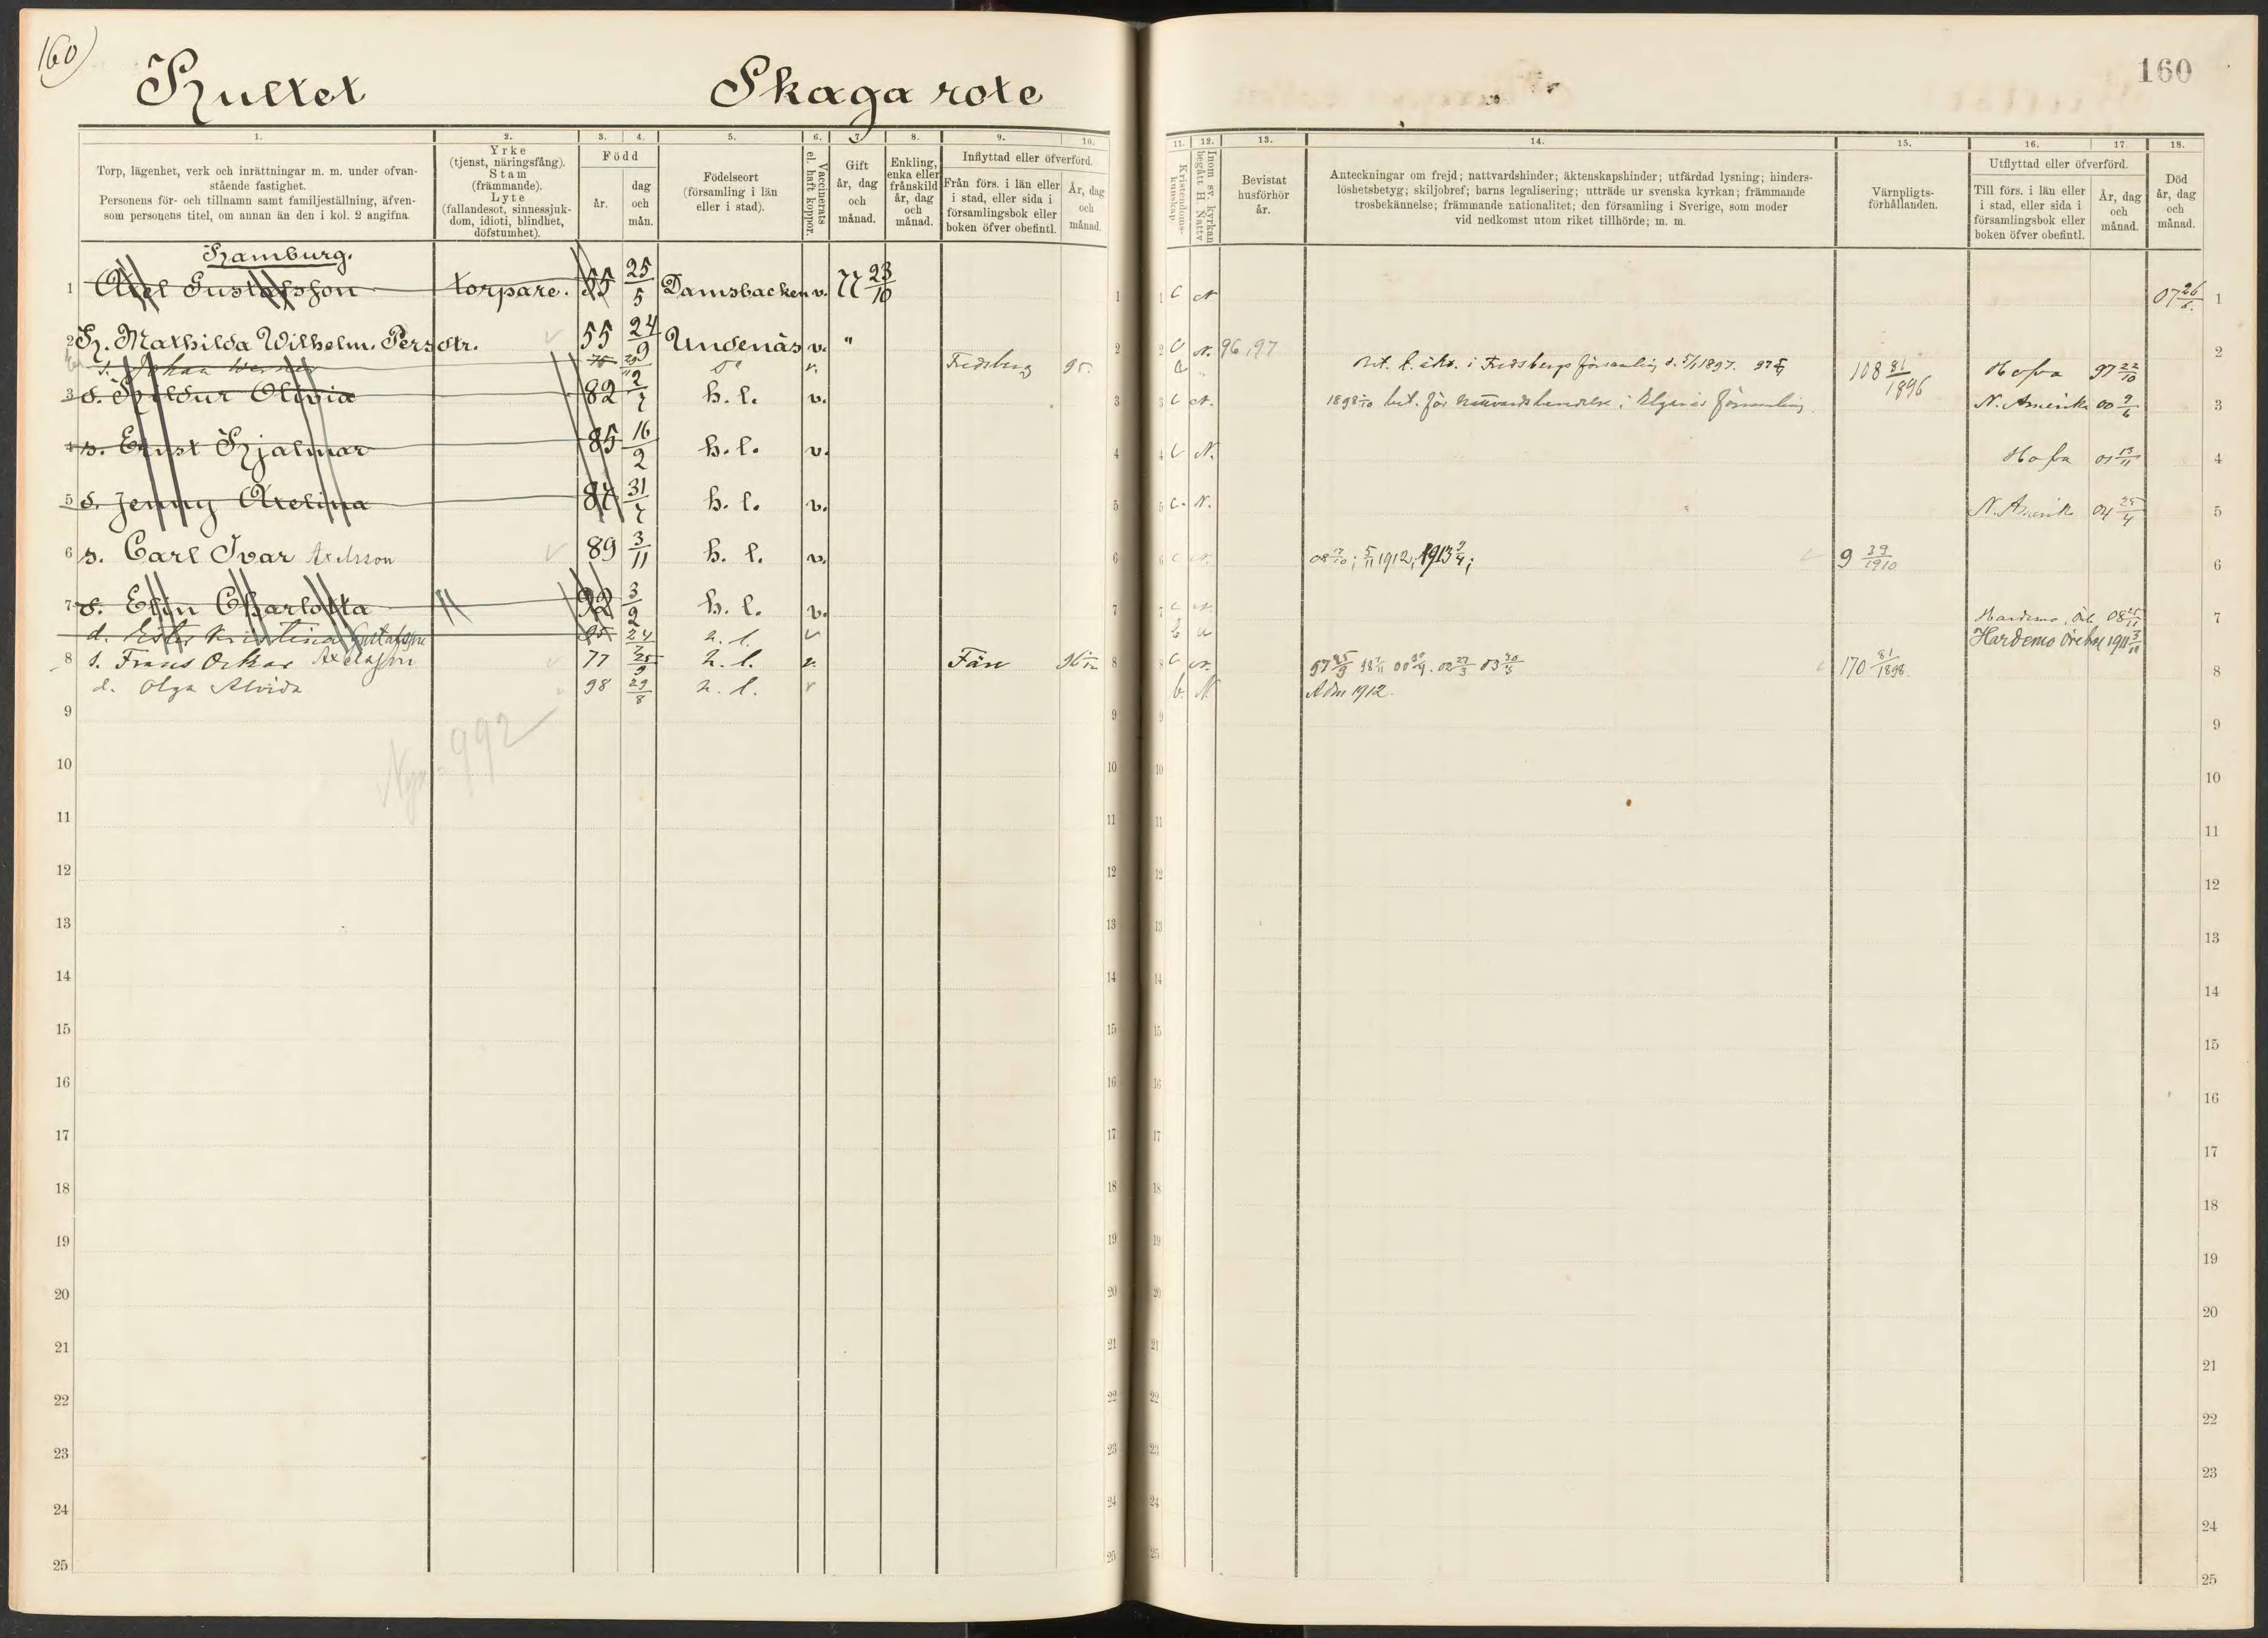 160)
Hultet Skaga rote
160
1. 2. 3. 4. 5. 6. 7. 8. 9. 10. 11. 12. 13. 14. 15. 16. 17. 18.
Torp, lägenhet, verk och inrättningar m. m. under ofvanstående fastighet.
Personens för- och tillnamn samt familjeställning, äfvensom personens titel, om annan än den i kol. 2 angifna.
Yrke (tjenst, näringsfång). Stam (främmande). Lyte (fallandesot, sinnessjukdom, idioti, blindhet, döfstumhet).
Född
år.
dag och mån.
Födelseort (församling i län eller i stad).
Vaccinerats el. haft koppor.
Gift år, dag och månad.
Enkling, enka eller frånskild år, dag och månad.
Inflyttad eller öfverförd.
Från förs. i län eller i stad, eller sida i församlingsbok eller boken öfver obefintl.
År, dag och månad.
Kristendomskunskap
Inom sv. kyrkan begått H. Nattv
Bevistat husförhör år.
Anteckningar om frejd; nattvardshinder; äktenskapshinder; utfärdad lysning; hinderslöshetsbetyg; skiljobref; barns legalisering; utträde ur svenska kyrkan; främmande trosbekännelse; främmande nationalitet; den församling i Sverige, som moder vid nedkomst utom riket tillhörde; m. m.
Värnpligtsförhållanden.
Utflyttad eller öfverförd.
Till förs. i län eller i stad, eller sida i församlingsbok eller boken öfver obefintl.
År, dag och månad.
Död år, dag och månad.
Hamburg.
1 Axel Gustafsson torpare. 55 25/5 Damsbacken v. 77 23/10 1 1 C N 07 26/6. 1
2 H. Mathilda Wilhelm. Persdtr. 55 24/9 Undenäs v. " 2 2 C N. 96,97 2
s. Johan Werner 75 29/11 D° v. Fredsberg 95. i Fredsbergs församling d. 5/1 1897. 108 81/1896 Hofva 97 22/10
3 d. Hildur Olivia 82 2/7 h. l. v. 3 3 C N. 1898 för nattvardshandelse i Elgarås församling N. Amerika 00 9/6 3
4 s. Ernst Hjalmar 85 16/2 h. l. v. 4 4 C N. Hofva 01 13/11 4
5 d. Jenny Axelina 87 31/7 h. l. v. 5 5 C. N. N. Amerik 04 25/4 5
6 s. Carl Ivar Axelsson 89 3/11 h. l. v. 6 6 C N. 08 /10; 5/11 1912; 1913 9/4; 9 39/1910 6
7 d. Elin Charlotta 92 3/9 h. l. v. 7 7 C N. Hardemo, Öreb. 08 25/11 7
d. Ester Kristina Gustafsson 95 24/7 h. l. v Hardemo Örebro 1911 3/11
8 s. Frans Oskar Axelsson 77 25/9 h. l. v. Färs 96 8 8 C N. 97 25/9 98 7/11 00 02 27/3 03 30/5 170 81/1898 8
d. Olga Alvida 98 29/8 h. l. v b N. Adm 1912.
992
9 9 9 9
10 10 10 10
11 11 11 11
12 12 12 12
13 13 13 13
14 14 14 14
15 15 15 15
16 16 16 16
17 17 17 17
18 18 18 18
19 19 19 19
20 20 20 20
21 21 21 21
22 22 22 22
23 23 23 23
24 24 24 24
25 25 25 25